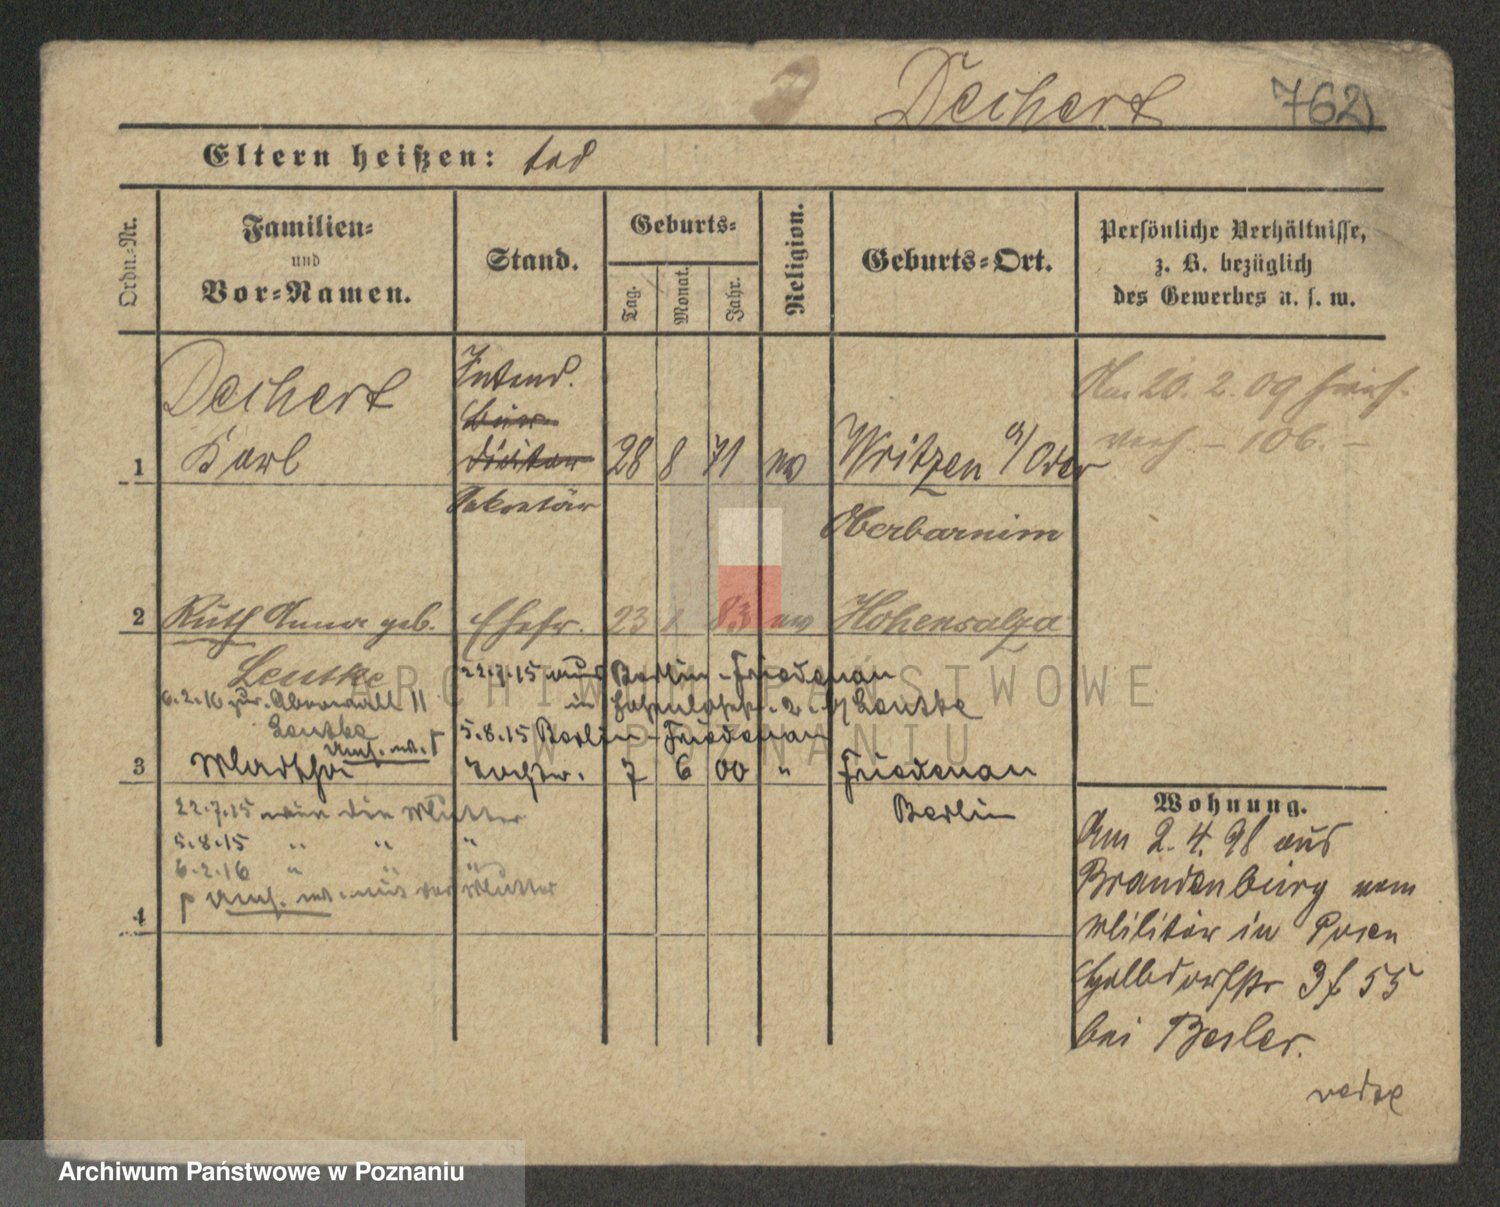 Deichert 762
Eltern heißen: tod
Ordn.-Nr.
Familien-
und
Vor-Namen.
Stand.
Geburts-
Tag.
Monat.
Jahr.
Religion.
Geburts-Ort.
Persönliche Verhältnisse,
z. B. bezüglich
des Gewerbes u. s. w.
Deichert
Intend.
Am 20. 2. 09
1 Karl 28 8 71 ev Writzen a/Oder
Sekretär
Oberbarnim
2 Ruth Anna geb. Ehefr. 23 83 ev Hohensalza
Leutke
22.7.15 Berlin-Friedenau
6.2.16 zur. in 2. Leutke
Leutke
5.8.15 Berlin-Friedenau
3 Martha Tochter. 7 6 00 " Friedenau
Berlin
22.7.15 Mutter
5.8.15 " " "
6.2.16 " " "
Mutter
4
Wohnung.
Am 2. 4. 98 aus
Brandenburg vom
Militär in Posen
3 55
bei Besler.
ARCHIWUM PAŃSTWOWE
W POZNANIU
Archiwum Państwowe w Poznaniu